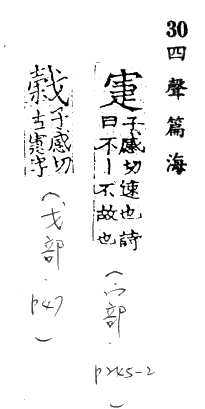 30 四聲篇海
寁 子感切速也詩
曰不丨不故也
(宀部. p245-2)
子感切
古寁字
(戈部. p47)